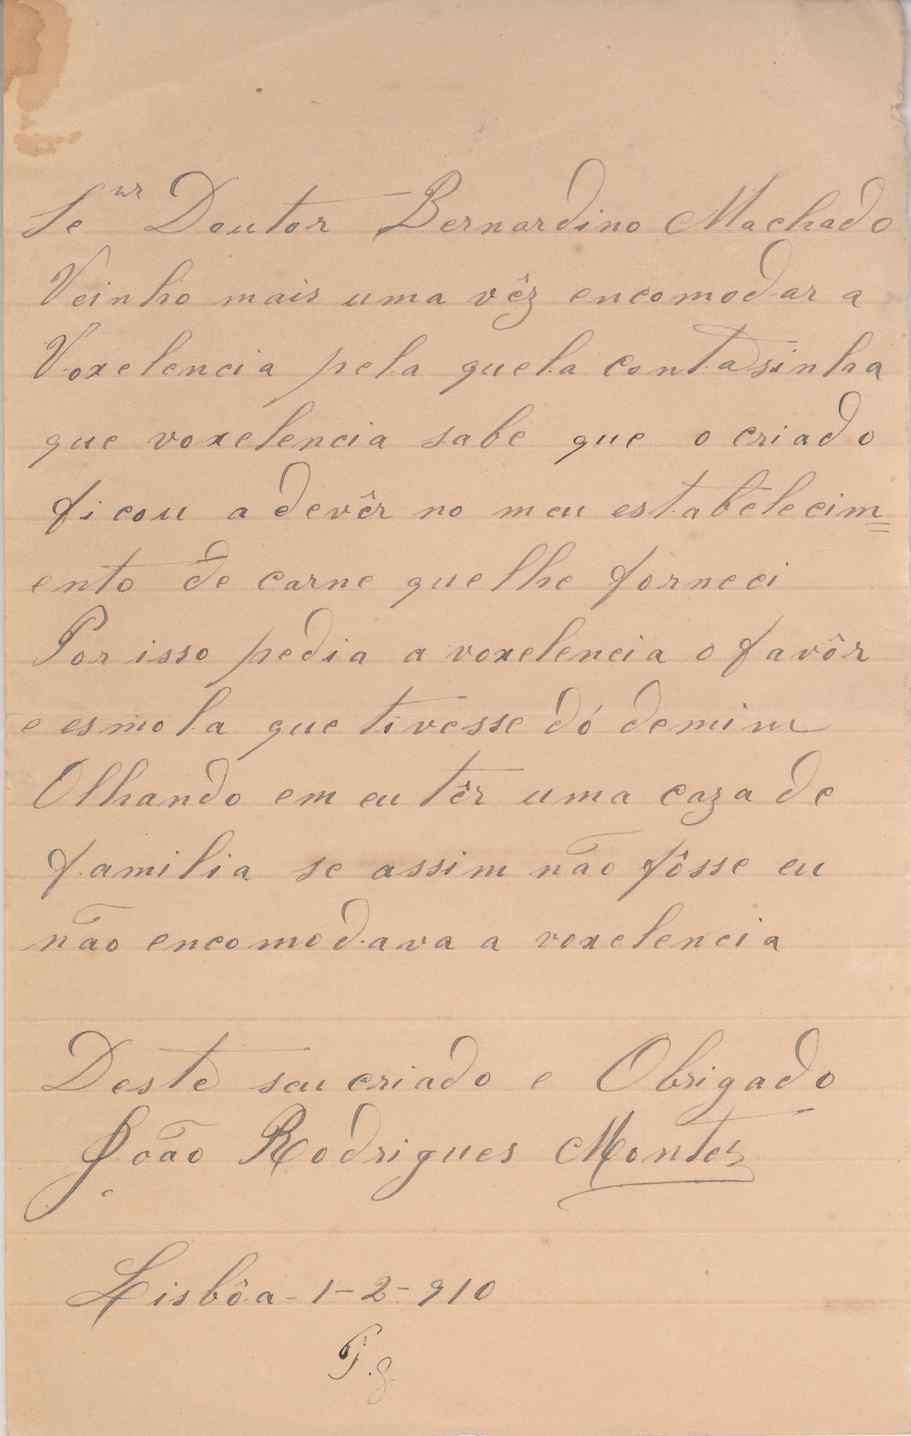 Se nr Doutor Bernardino Machado
Veinho mais uma vêz encomodar a
Voxelencia pela quela contasinha
que voxelencia sabe que o criado
ficou a devêr no meu estabêlecim=
ento de carne que lhe forneci
Por isso pedia a voxelencia o favôr
e esmola que tivesse dó de mim
Olhando em eu têr uma caza de
familia se assim não fôsse eu
não encomodava a voxelencia
Deste seu criado e Obrigado
João Rodrigues Montes
Lisbôa - 1 - 2 - 910